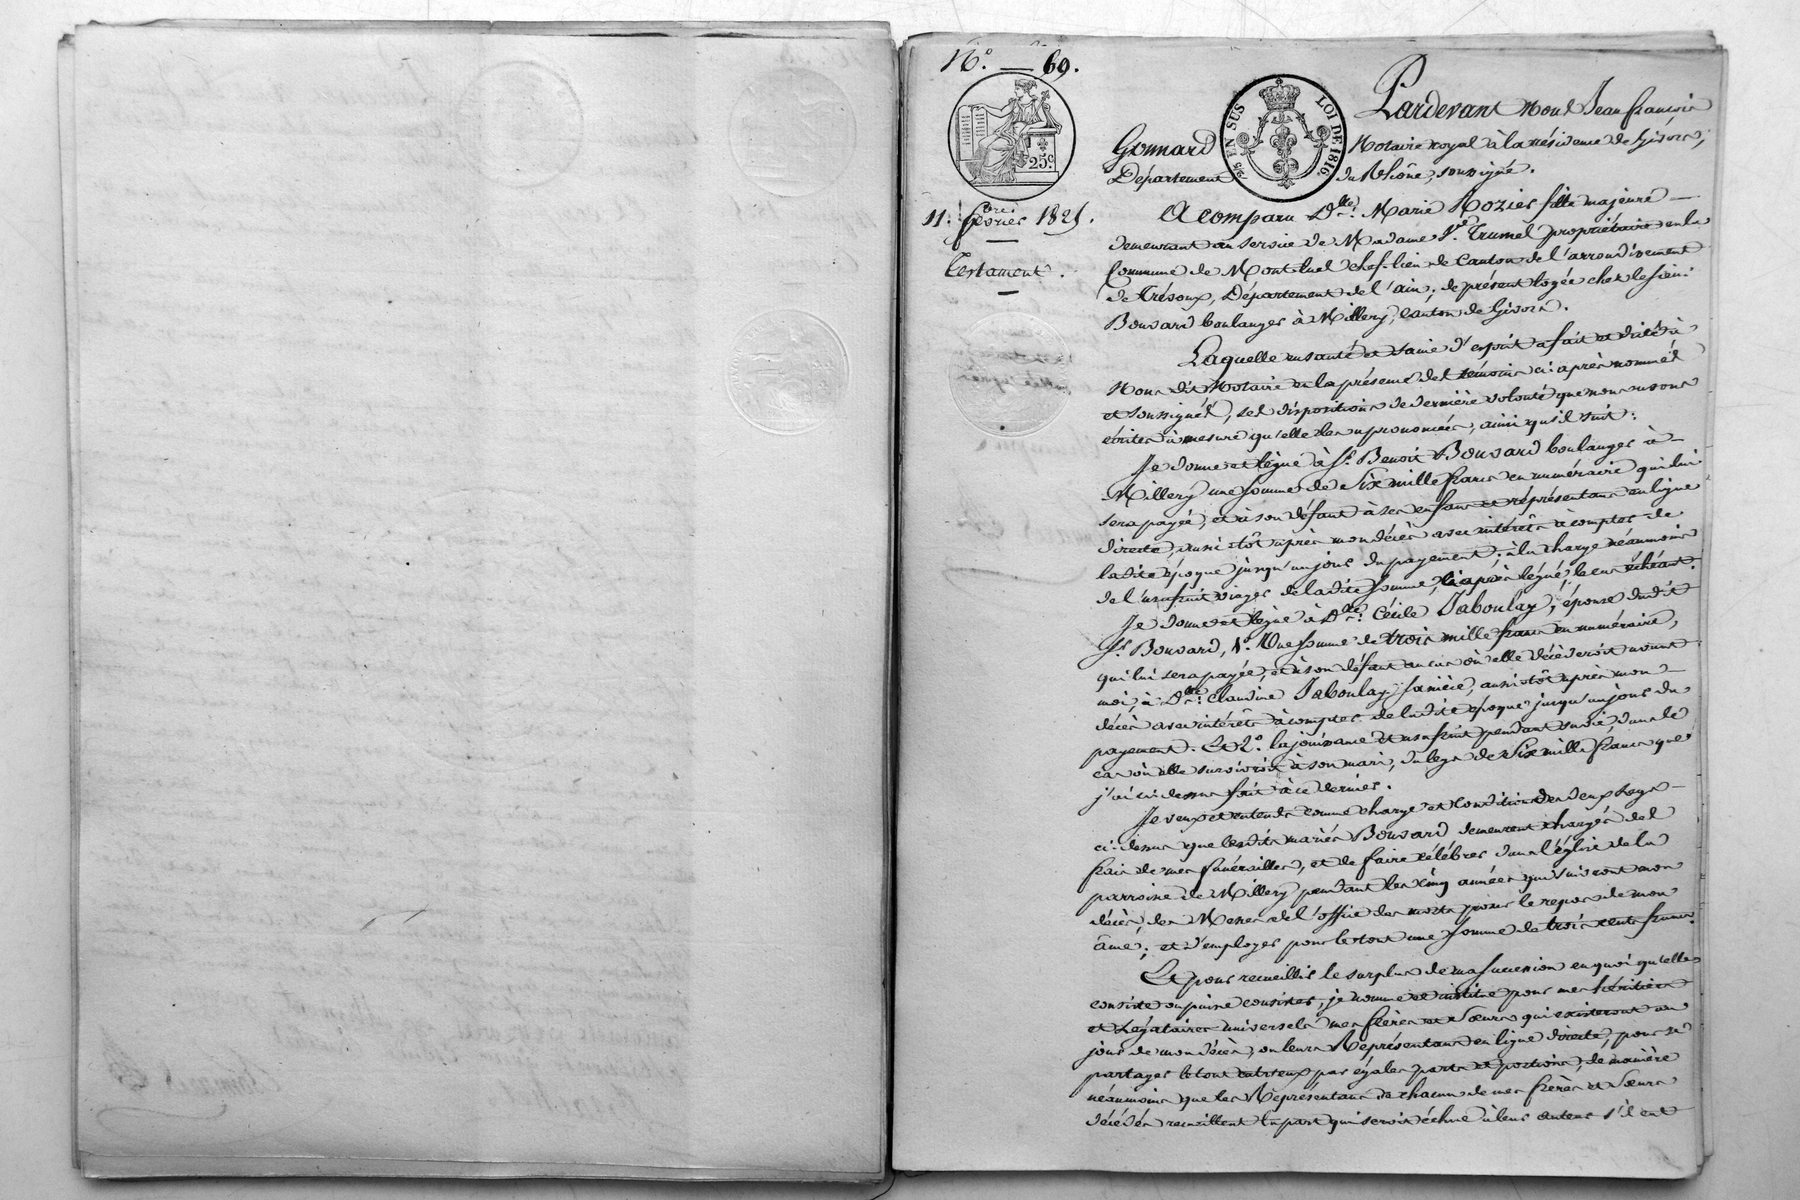 N.° — 69.
25.c
2/5 EN SUS LOI DE 1816.
11. février 1821.
Testament.
Pardevant Nous Jean François
Gonnard Notaire royal à la résidence de Givors,
Département du Rhône, soussigné.
A comparu Dlle. Marie Rozier fille majeure —
demeurant au service de Madame Ve. Trumel propriétaire en la
Commune de Montluel chef-lieu de Canton de l'arrondissement
de Trévoux, Département de l'ain; de présent logée chez le sieur
Bouvard boulanger à Millery, canton de Givors.
Laquelle en santé et saine d'esprit a fait et dicté à
Nous dit Notaire en la présence des témoins ci-après nommés
et soussignés, ses dispositions de dernière volonté que nous avons
écrites à mesure qu'elle les a prononcées, ainsi qu'il suit:
Je donne et lègue à Sr. Benoit Bouvard boulanger à —
Millery une somme de Six mille francs en numéraire qui lui
sera payée, et à son défaut à ses enfans et représentans en ligne
directe, aussitôt après mon décès avec intérêts à compter de
ladite époque jusqu'au jour du payement; à la charge néanmoins
de l'usufruit viager de ladite somme, ci-après légué, le cas échéant.
Je donne et lègue à De. Cécile Jaboulay, épouse dudit
Sr. Bouvard, 1°. Une somme de trois mille francs en numéraire,
qui lui sera payée, et à son défaut au cas où elle décèderoit avant
moi, à Dlle. Claudine Jaboulay sa nièce, aussitôt après mon —
décès avec intérêts à compter de ladite époque jusqu'au jour du
payement. Et 2°. la jouissance et usufruit pendant sa vie, dans le
cas où elle survivroit à son mari, du legs de Six mille francs que
j'ai ci-dessus fait à ce dernier.
Je veux et entends comme charge et condition des deux legs —
ci-dessus que lesdits mariés Bouvard demeurent chargés des
frais de mes funérailles, et de faire célébrer dans l'église de la
parroisse de Millery pendant les cinq années qui suivront mon
décès, des Messes et l'office des morts pour le repos de mon
âme; et d'employer pour le tout une somme de trois cents francs.
Et pour recueillir le surplus de ma succession en quoi qu'elle
consiste ou puisse consister, je nomme et institue pour mes héritiers
et Légataires universels mes frères et Sœurs qui existeront au
jour de mon décès, ou leurs Représentans en ligne directe, pour se
partager le tout entr'eux par égales parts et portions, de manière
néanmoins que les Représentans de chacun de mes frères et Sœurs
décédés recueillent la part qui seroit échue à leur auteur s'il eut